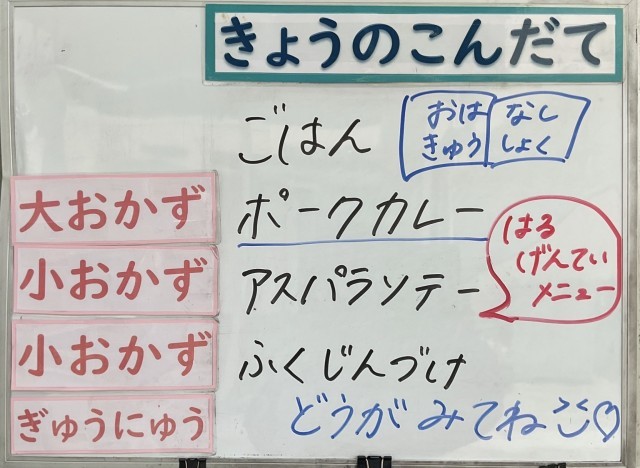 きょうのこんだて
ごはん
おはなし
きゅうしょく
大おかず
ポークカレー
はる
げんてい
メニュー
小おかず
アスパラソテー
小おかず
ふくじんづけ
ぎゅうにゅう
どうがみてね